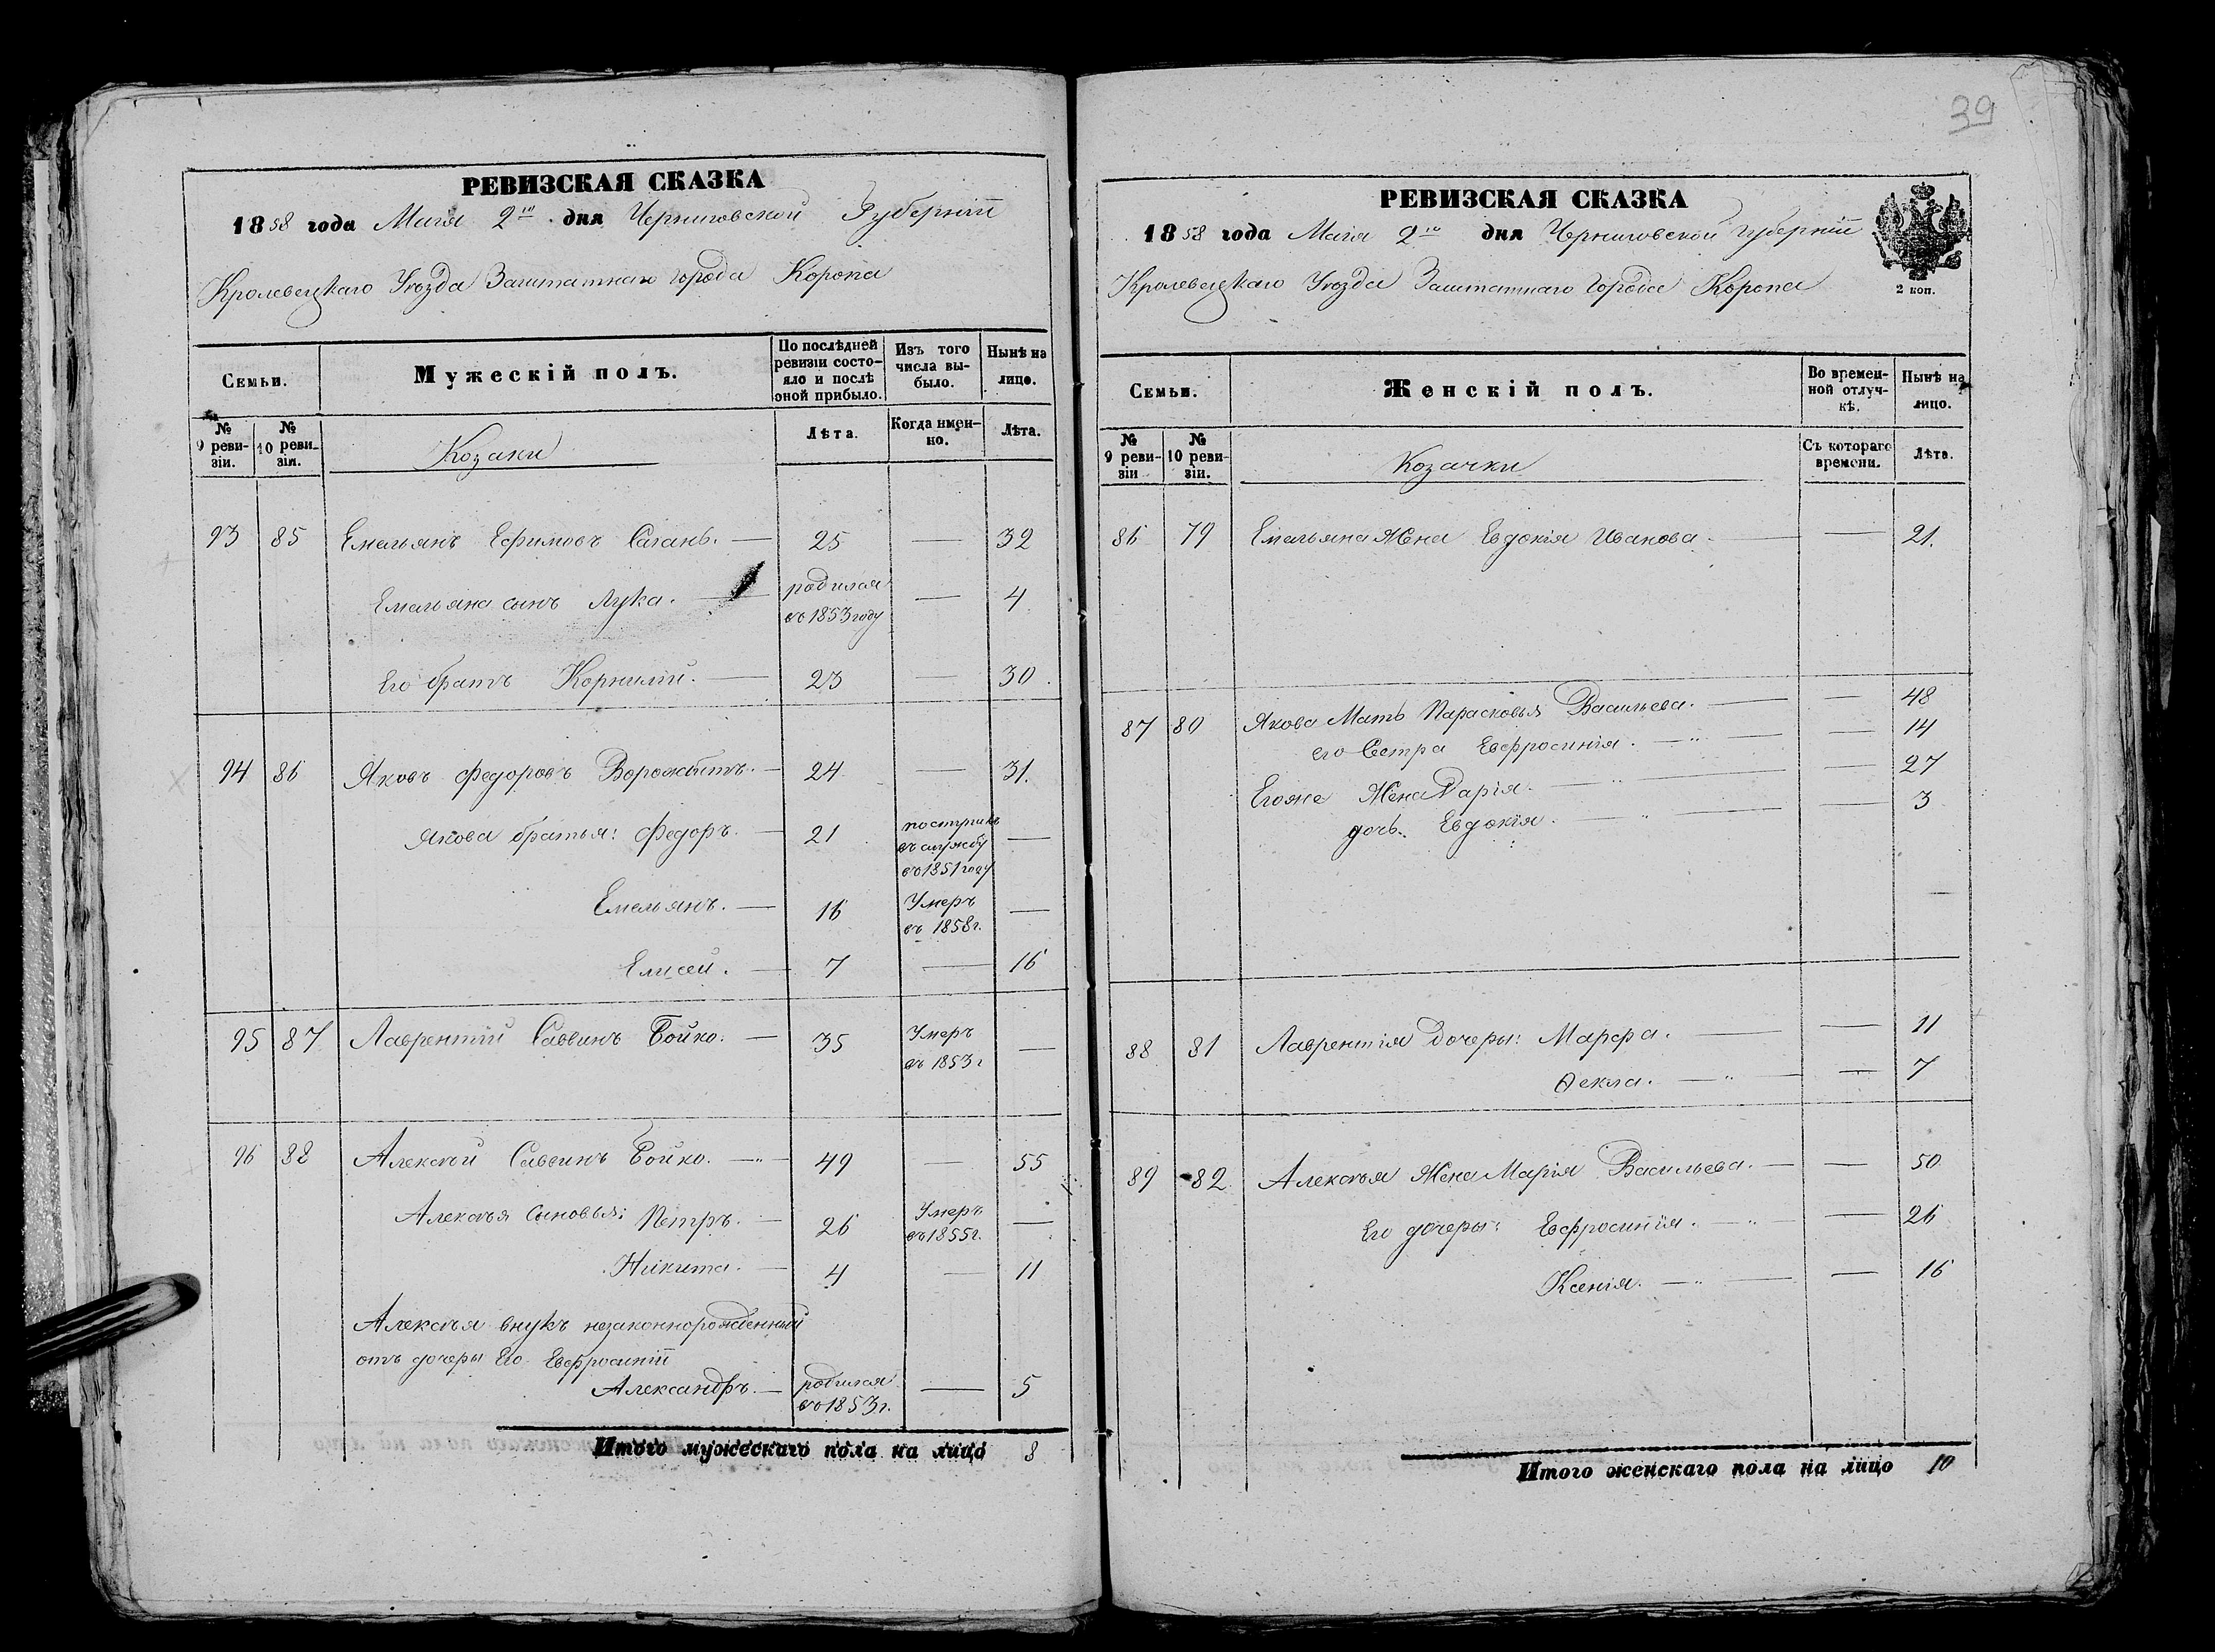 39
РЕВИЗСКАЯ СКАЗКА
1858 года Маія 2го дня Черниговской Губерніи
Кролевецкаго Уѣзда Заштатнаго города Коропа
Семьи.
Мужескій полъ.
По послѣдней ревизіи состояло и послѣ оной прибыло.
Изъ того числа выбыло.
Нынѣ на лицо.
№ 9 ревизіи.
№ 10 ревизіи.
Козаки
Лѣта.
Когда именно.
Лѣта.
93 85 Емельянъ Ефимовъ Саганъ. — 25 — 32
Емельяна сынъ Лука. — родился въ 1853 году — 4
Его братъ Корнилій. — 23 — 30
94 86 Яковъ Федоровъ Ворожбитъ. — 24 — 31.
Якова братья: Федоръ. — 21 поступилъ въ службу въ 1851 году —
Емельянъ. — 16 Умеръ въ 1858 г. —
Елисей. — 7 — 16
95 87 Лаврентій Саввинъ Бойко. — 35 Умеръ въ 1853 г —
96 88 Алексѣй Саввинъ Бойко. — 49 — 55
Алексѣя сыновья: Петръ. — 26 Умеръ въ 1855 г. —
Никита. — 4 — 11
Алексѣя внукъ незаконнорожденный
отъ дочеры Его Евфросиніи
Александръ. — родился въ 1853 г. — 5
Итого мужескаго пола на лицо 8
РЕВИЗСКАЯ СКАЗКА
1858 года Маія 2го дня Черниговской Губерніи
Кролевецкаго Уѣзда Заштатнаго Города Коропа
2 коп.
Семьи.
Женскій полъ.
Во временной отлучкѣ.
Нынѣ на лицо.
№ 9 ревизіи
№ 10 ревизіи.
Козачки
Съ котораго времени.
Лѣта.
86 79 Емельяна Жена Евдокія Иванова — — 21.
87 80 Якова Мать Парасковья Васильева. — — 48
его Сестра Евфросинія. — — 14
Егоже Жена Дарія. — — 27
дочь. Евдокія. — — 3
88 81 Лаврентія Дочеры: Марфа. — — 11
Ѳекла. — — 7
89 82 Алексѣя Жена Марія Васильева. — — 50
Его дочеры: Евфросинія. — — 26
Ксенія. — — 16
Итого женскаго пола на лицо 10